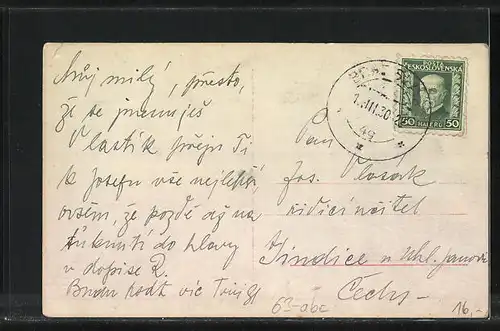 Můj milý, přesto,
že se jmenuješ
Vlastík přeju Ti
k Josefu vše nejlepší
ovšem, že pozdě až na
ťuknutí do hlavy
v dopise R.
Budu rodt víc
Pan
Jos. Vlasák
řídící učitel
Jindice u Uhl. Janovic
Čechy
POŠTA
ČESKOSLOVENSKÁ
50 HALÉŘŮ 50
III.30
4g
63-abc
16,-